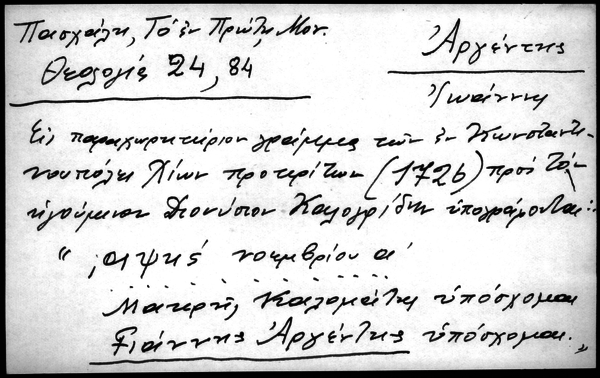 Πασχάλη, Τὸ ἐν Πρώτῃ Μον.
Θεολογίς 24, 84,
Ἀργέντης
Ἰωάννης
Εἰς παραχωρητήριον γράμμα τῶν ἐν Κωνσταντι-
νουπόλει Χίων προκρίτων (1726) πρὸς τὸν
ἡγούμενον Διονύσιον Καλογρίδην ὑπογράφονται:
" ͵αψκς΄ νοεμβρίου α΄
Μακρῆς Καλομάτης ὑπόσχομαι
Γιάννης Ἀργέντης ὑπόσχομαι. "